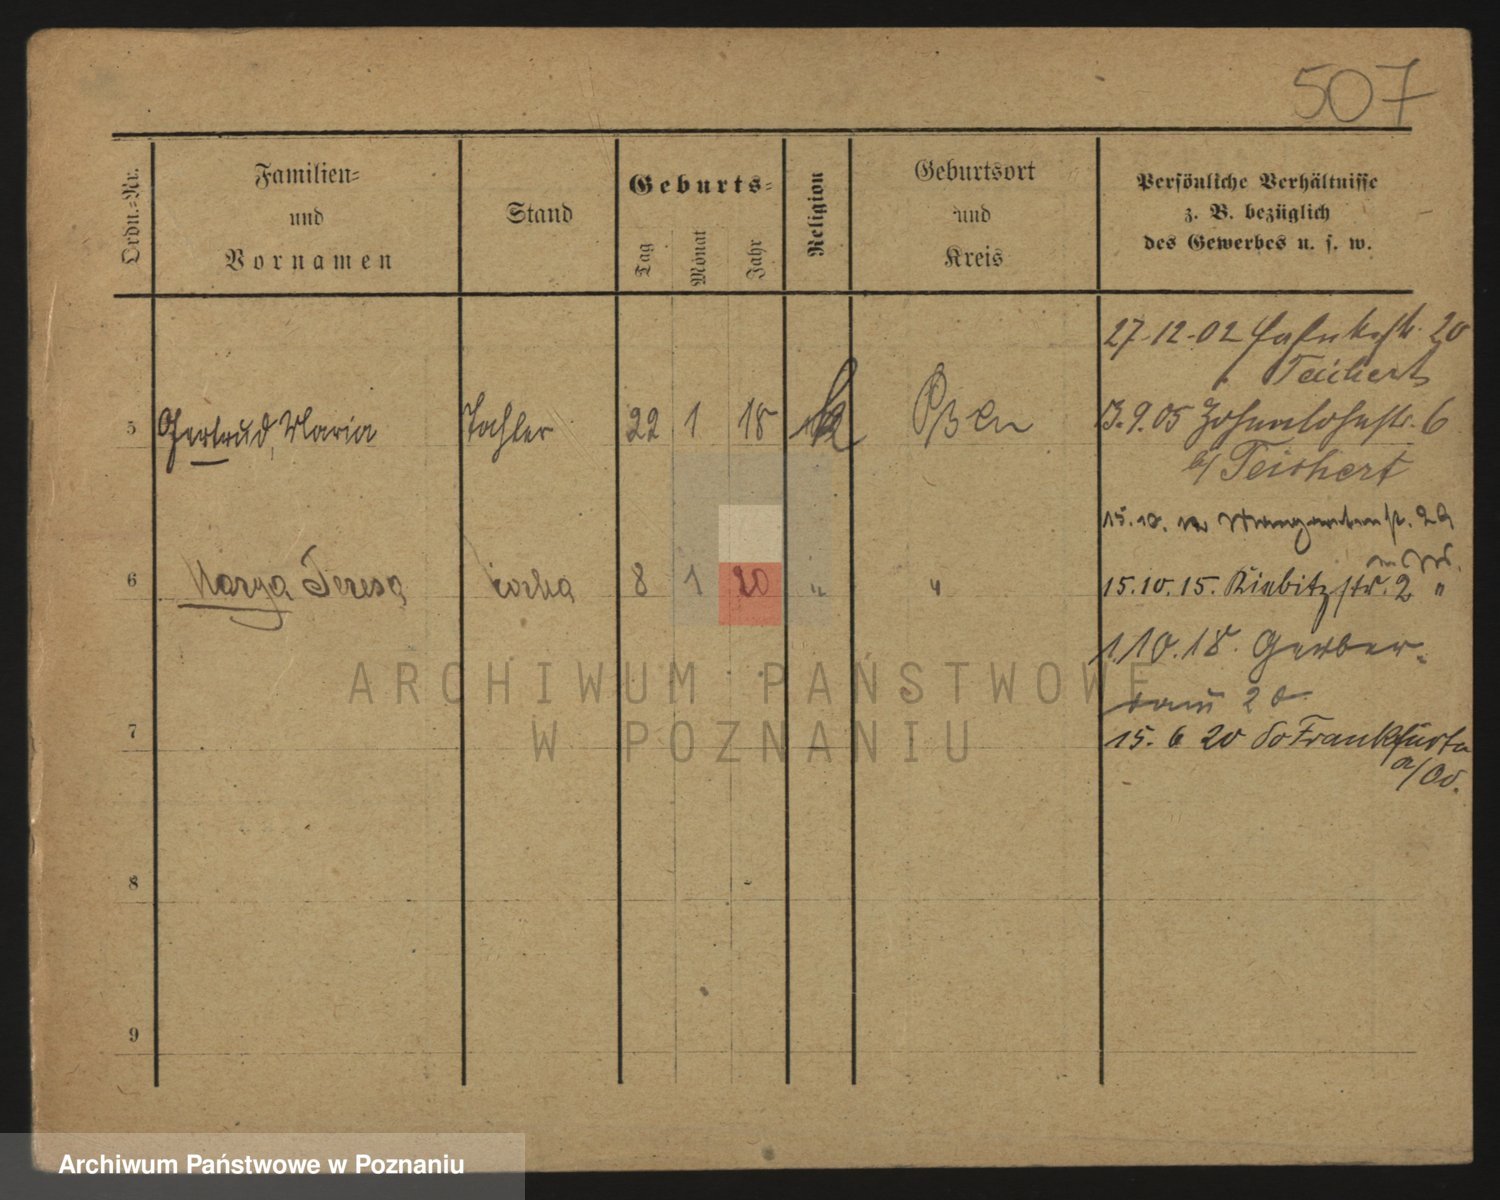 507
Ordn.-Nr.
Familien-
und
Vornamen
Stand
Geburts-
Tag
Monat
Jahr
Religion
Geburtsort
und
Kreis
Persönliche Verhältnisse
z. B. bezüglich
des Gewerbes u. s. w.
27.12.02 20
Teichert
5 Gertrud, Maria Tochter 22 1 18 Psen
13.9.05 Hohenlohestr. 6
b/ Teichert
15.10.
6 Marga Teresa corka 8 1 20 " "
15.10.15. Kiebitzstr. 2 "
1.10.18. Gerber-
damm
7
15. 6 20 do Frankfurta
a/Od.
8
9
ARCHIWUM PAŃSTWOWE
W POZNANIU
Archiwum Państwowe w Poznaniu